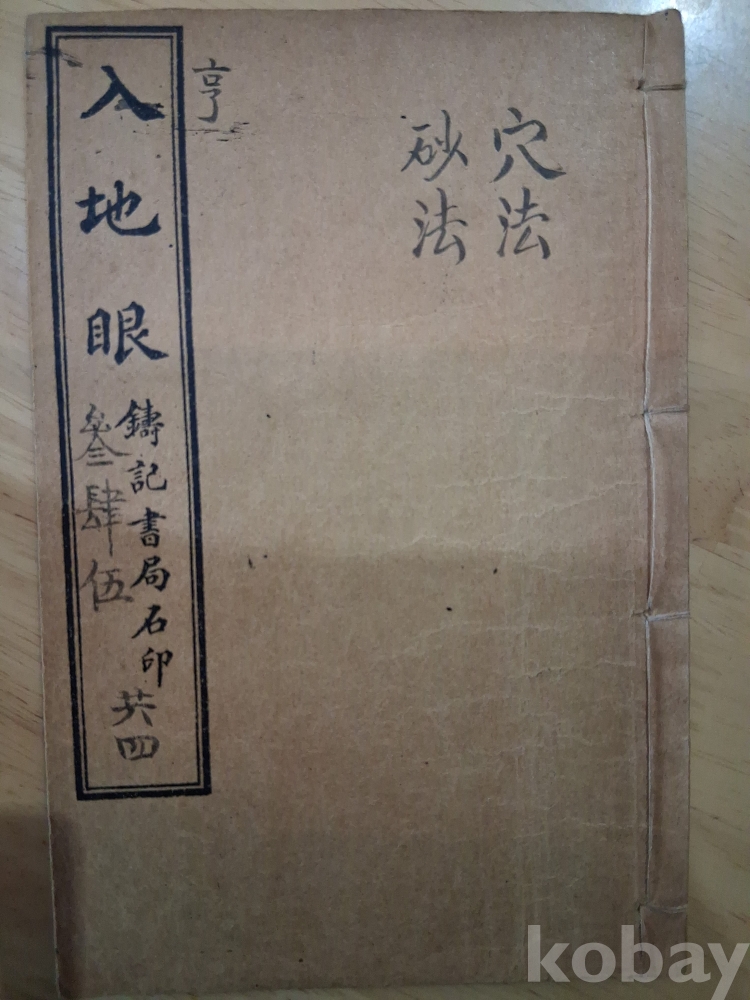 穴法
砂法
亨
入地眼
鑄記書局石印
叄肆伍
共四
kobay